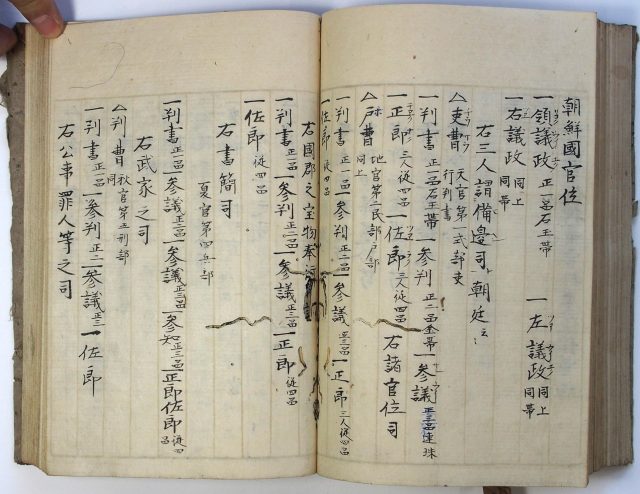 朝鮮國官位
一領議政 正一品石玉帯 一左議政 同上同帯
一右議政 同上同帯
右三人謂備邊司朝廷云
△吏曹 天官第一式部吏行判書
一判書 正二品玉帯 一參判 正二品金帯 一參議 正三品達珠
一正郎 三人従四品 一佐郎 三人従四品 右諸官位司
△戸曹 地官第二民部戸部同上
一判書 正一品 一參判 正二品 一參議 正三品 一正郎 三人従四品
一佐郎 従四品
右國郡之宝物奉
一判書 正一品 一參判 正二品 一參議 正三品 一正郎 従四品
一佐郎 従四品
右書簡司
夏官第四兵部
一判書 正一品 一參議 正二品 一參議 正三品 一參知 正三品 一正郎佐郎 従四品
右武家之司
△刑曹 秋官第五刑部同上
一判書 正一品 一參判 正二 一參議 正三 一佐郎
右公事罪人等之司